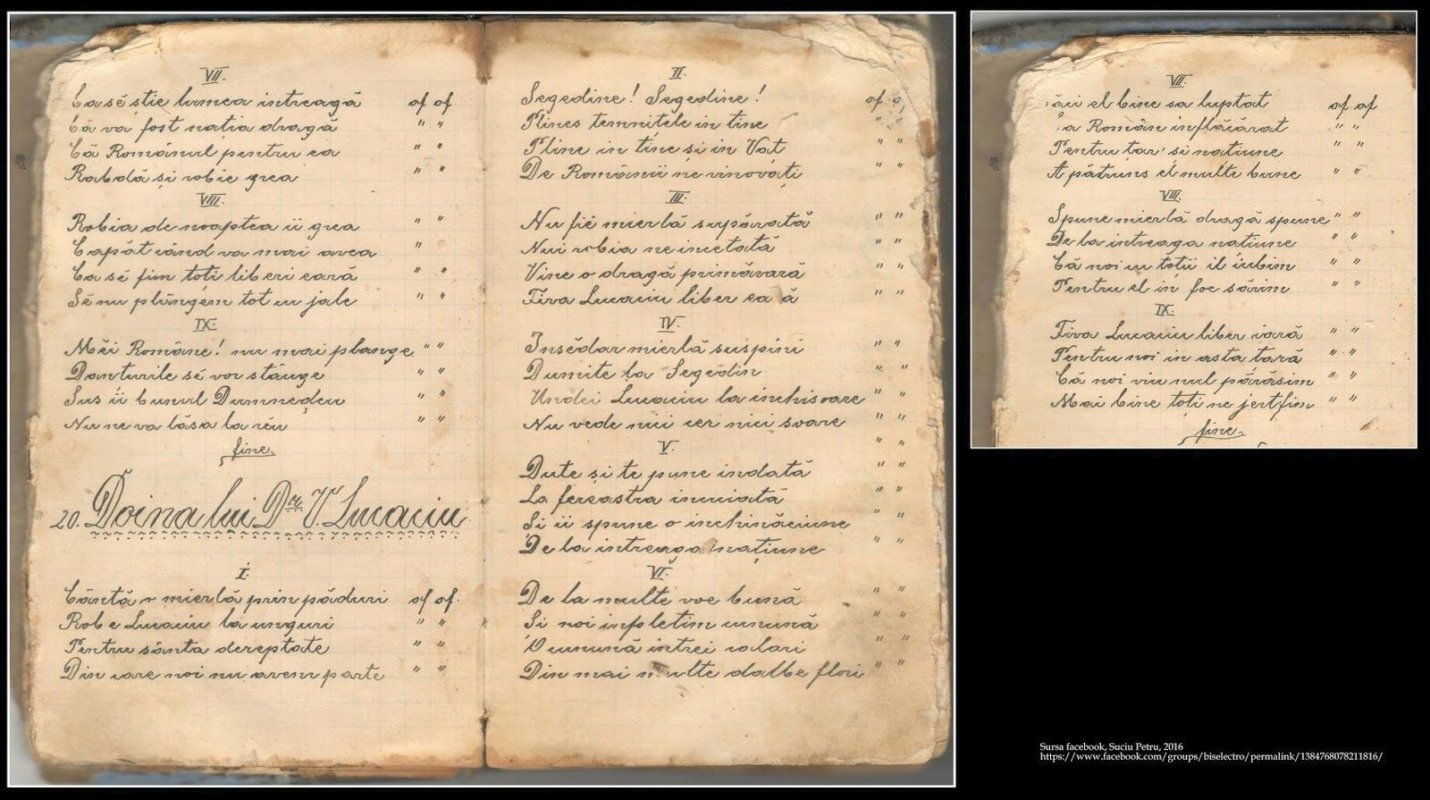 VII.
Ca sĕ știe lumea intreagă of of
Că va fost natia dragă " "
Că Românul pentru ea " "
Rabdă și robie grea " "
VIII.
Robia de noaptea ii grea " "
Capăt când va mai avea "
Ca sĕ fim toți liberi eară " "
Sĕ nu plângem tot cu jale " "
IX.
Mĕi Române! nu mai plange " "
Danturile sĕ vor stânge " "
Sus ii bunul Dumnedeu " "
Nu ne va lăsa la rĕu " "
fine.
20. Doina lui Dr. V. Lucaciu
I.
Cântă o mierlă prin păduri of of.
Rob e Lucaciu la unguri " "
Pentru sânta dereptate " "
Din care noi nu avem parte " "
II.
Segedine! Segedine! of
Plines temnitele in tine "
Pline in tine și in Vaț " "
De Românii ne vinovați " "
III.
Nu fie mierlă supărată " "
Nui robia ne incetată " "
Vine o dragă primăvară " "
Fiva Lucaciu liber ea ă " "
IV.
Insĕdar mierlă suspini " "
Dumite la Segedin " "
Undei Lucaciu la inchisoare " "
Nu vede nici cer nici soare " "
" "
V.
Dute și te pune indată " "
La fereastra incuiată " "
Si ii spune o inchinăciune " "
De la intreaga națiune " "
VI.
De la multe voe bună " "
Si noi impletim cunună " "
O cunună intrei colori " "
Din mai multe dalbe flori " "
VII.
ăci el bine sa luptat of of
a Român inflăcărat " "
Pentru țar' si natiune " "
A pătruns el multe bune " "
VIII.
Spune mierlă dragă spune " "
De la intreaga natiune " "
Că noi cu totii il iubim " "
Pentru el in foc sărim " "
IX.
Fiva Lucaciu liber iară " "
Pentru noi in asta tară " "
Că noi viu nul părăsim " "
Mai bine toti ne jertfim " "
fine.
Sursa facebook, Suciu Petru, 2016
https://www.facebook.com/groups/biselectro/permalink/1384768078211816/